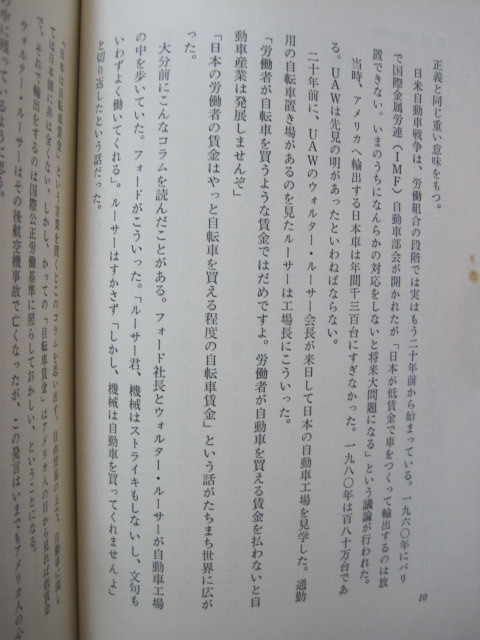 正義と同じ重い意味をもつ。
日米自動車戦争は、労働組合の段階では実はもう二十年前から始まっている。一九六〇年にパリ
で国際金属労連(IMF)自動車部会が開かれたが「日本が低賃金で車をつくって輸出するのは放
置できない。いまのうちになんらかの対応をしないと将来大問題になる」という議論が行われた。
当時、アメリカへ輸出する日本車は年間千三百台にすぎなかった。一九八〇年は百八十万台であ
る。UAWは先見の明があったといわねばならない。
二十年前に、UAWのウォルター・ルーサー会長が来日して日本の自動車工場を見学した。通勤
用の自転車置き場があるのを見たルーサーは工場長にこういった。
「労働者が自転車を買うような賃金ではだめですよ。労働者が自動車を買える賃金を払わないと自
動車産業は発展しませんぞ」
「日本の労働者の賃金はやっと自転車を買える程度の自転車賃金」という話がたちまち世界に広が
った。
大分前にこんなコラムを読んだことがある。フォード社長とウォルター・ルーサーが自動車工場
の中を歩いていた。フォードがこういった。「ルーサー君、機械はストライキもしないし、文句も
いわずよく働いてくれる」。ルーサーはすかさず「しかし、機械は自動車を買ってくれませんよ」
と切り返したという話だった。
「日本は自転車賃金」という言葉を聞くとこのコラムを思い出す。自由貿易の上で、自動車に関し
ては日本側に非は全くない。しかし、かつての「自転車賃金」はアメリカ人の目から見れば低賃金
で、それで輸出をするのは国際公正労働基準に照らしておかしい、ということになる。
ウォルター・ルーサーはその後航空機事故で亡くなったが、この発言はいまでもアメリカ人の心
の中に残っているように思う。
10